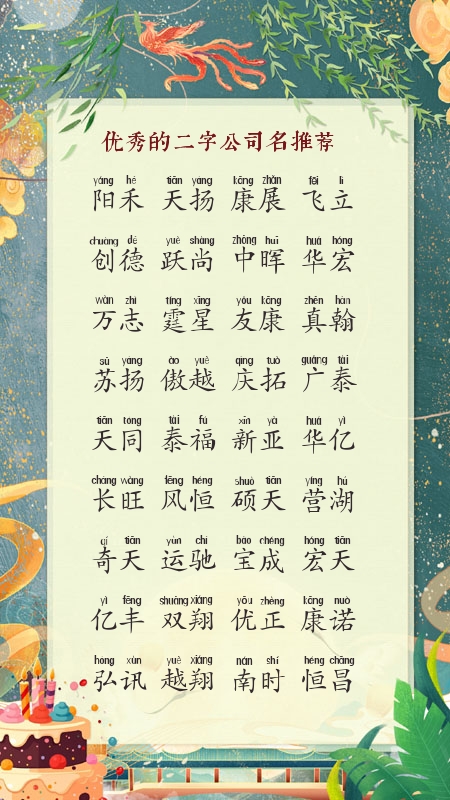 优秀的二字公司名推荐
yáng hé tiān yáng kāng zhǎn fēi lì
阳禾 天扬 康展 飞立
chuàng dé yuè shàng zhōng huī huá hóng
创德 跃尚 中晖 华宏
wàn zhì tíng xīng yǒu kāng zhēn hàn
万志 霆星 友康 真翰
sū yáng ào yuè qìng tuò guǎng tài
苏扬 傲越 庆拓 广泰
tiān tóng tài fú xīn yà huá yì
天同 泰福 新亚 华亿
cháng wàng fēng héng shuò tiān yíng hú
长旺 风恒 硕天 营湖
qí tiān yùn chí bǎo chéng hóng tiān
奇天 运驰 宝成 宏天
yì fēng shuāng xiáng yōu zhèng kāng nuò
亿丰 双翔 优正 康诺
hóng xùn yuè xiáng nán shí héng chāng
弘讯 越翔 南时 恒昌